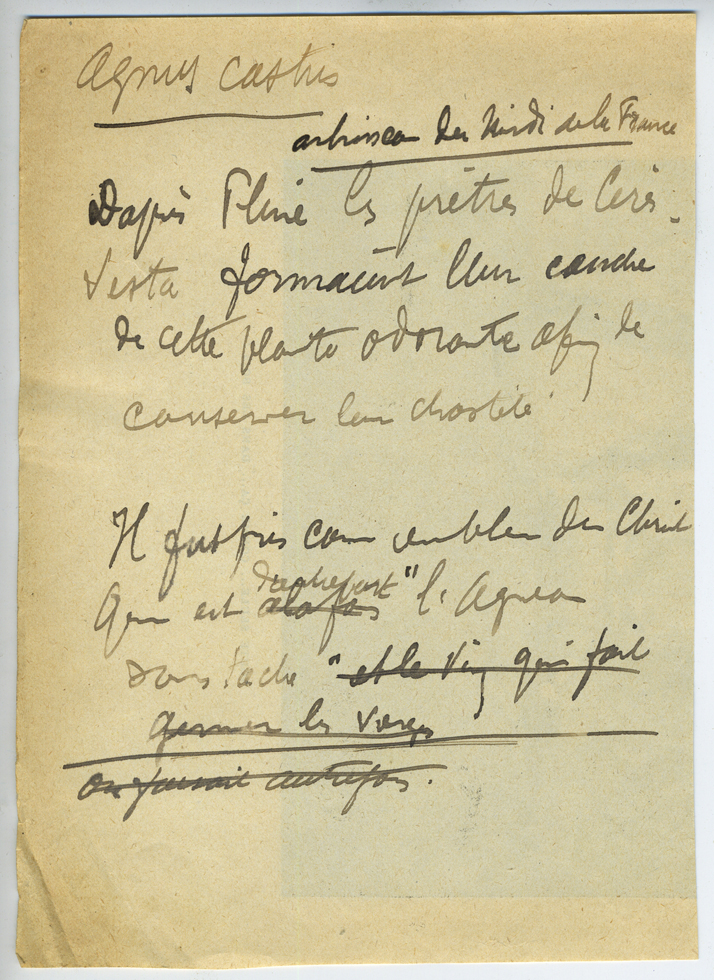 Agnus castus
arbrisseau du Midi de la France
D'après Pline les prêtres de Cérès -
Vesta formaient leur couche
de cette plante odorante afin de
conserver leur chasteté
Il fut pris comme emblème du Christ
Qui est à la fois d'autre part "l'Agneau
sans tache" et le Vin qui fait
germer les Vierges
on faisait autrefois.